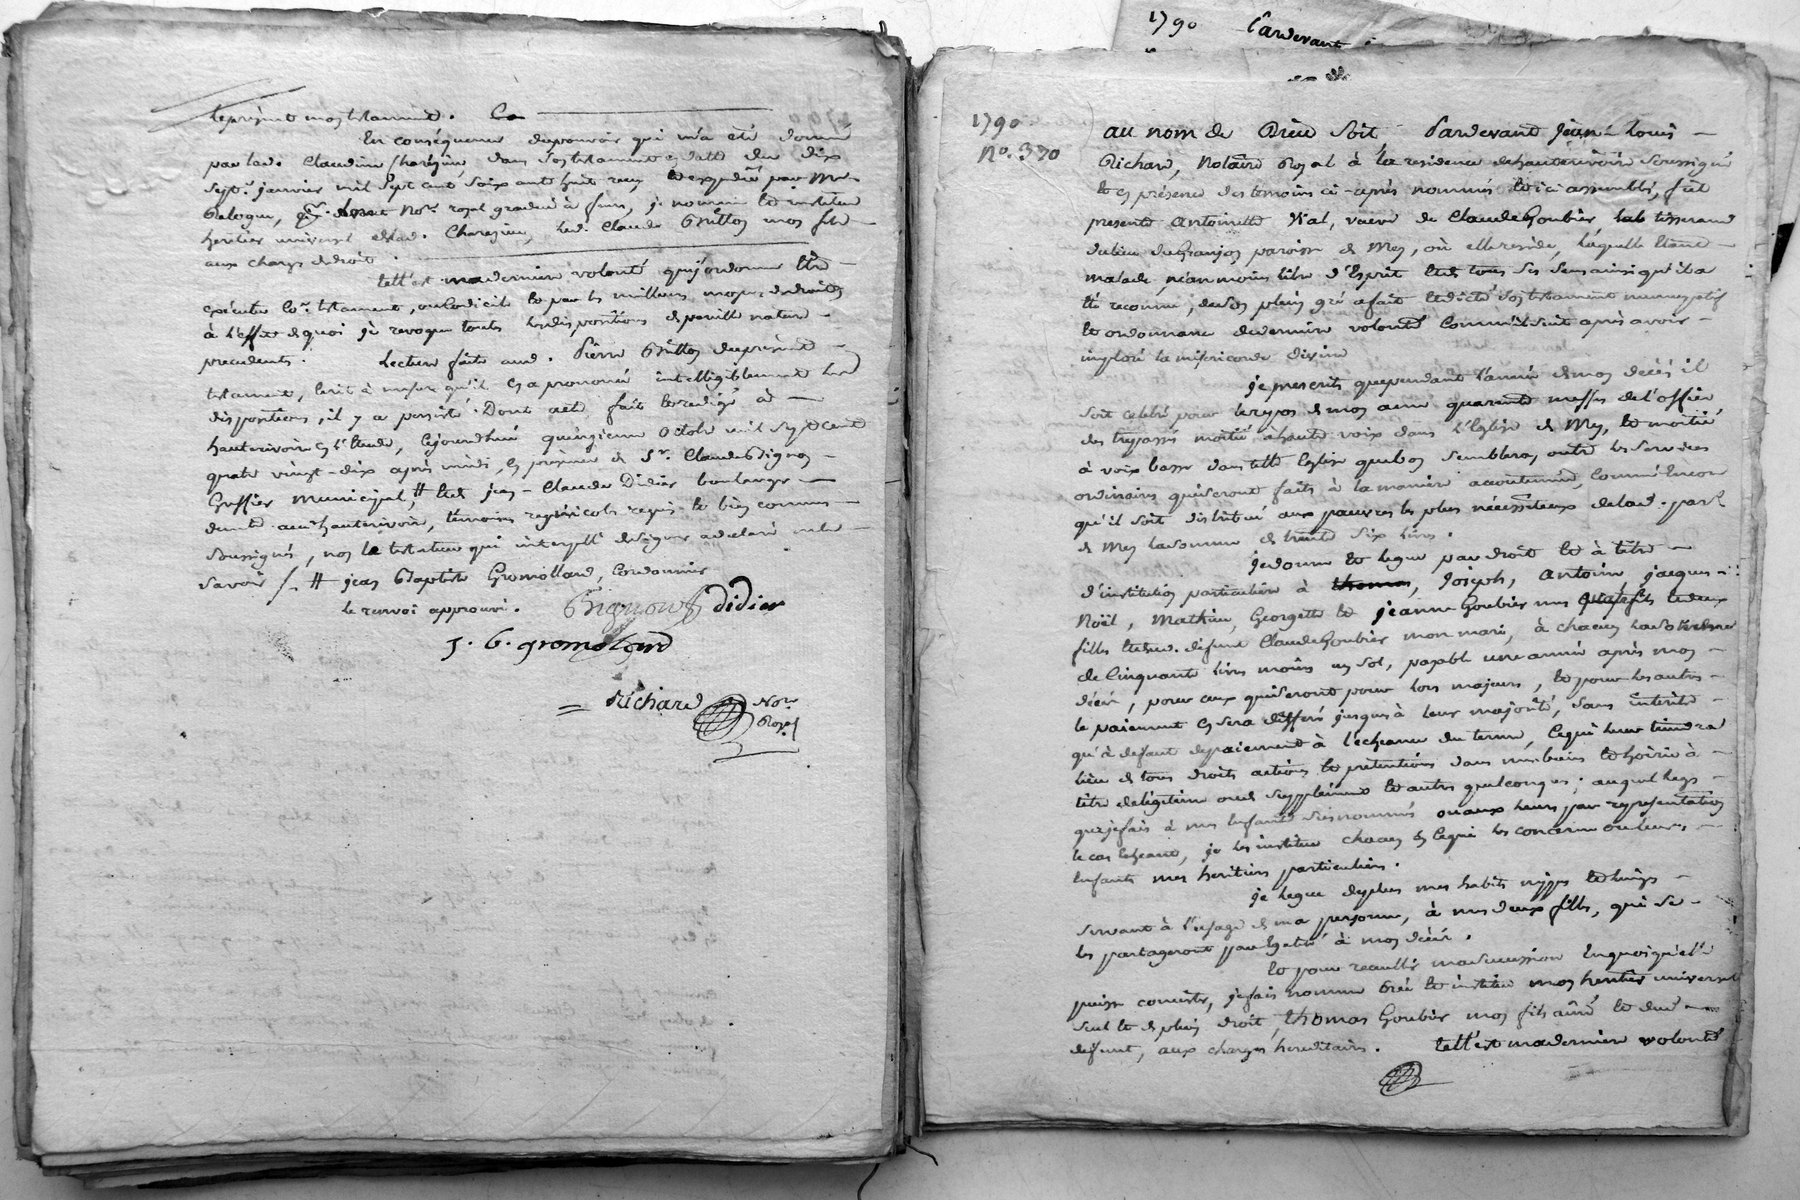 le présent mon testament.
En conséquence du pouvoir qui m'a été donné
par lad. Claudine Charezieu, dans son testament en datte du dix
sept. janvier mil sept cent soixante huit reçu et expédié par Me
Not. royal gradué à feurs, je nomme et institue
heritier universel de lad. Charezieu, led. Claude Britton mon fils
aux charges de droit.
tell'est ma derniere volonté que j'ordonne être
exécutée co. testament, ou codicile et par les meilleurs moyens de droit
à l'effet de quoi je revoque toutes les dispositions de pareille nature
precedentes. Lecture faite aud. Pierre Britton du présent
testament, écrit à mesure qu'il en a prononcé intelligiblement les
dispositions, il y a persisté. Dont acte fait et redigé à
hauterivoire en l'étude, cejourd'hui quinzieme octobre mil sept cent
quatre vingt-dix après midi, en présence de Sr. Claude Bignon
Greffier municipal, # et de jean-Claude Didier boulanger
demt. aud. hauterivoire, témoins regnicoles requis et bien connus
soussignés, non le testateur qui interpellé de signer a declaré ne le
savoir /. # jean Baptiste Gromollard, Cordonnier
le renvoi approuvé. Bignon Didier
J. B. gromolard
= Richard Not.
Roy.l
1790 Pardevant
1790
No. 370
au nom de Dieu soit Pardevant Jean-Louis
Richard, Notaire Royal à la residence de hauterivoire soussigné
et en présence des temoins ci-après nommés et ici assemblés, fut
presente Antoinette Vial, veuve de Claude Goubier tisserand
du lieu du Granjon paroisse de Mey, où elle reside, laquelle étant
malade néanmoins libre d'Esprit et de tous ses sens ainsi qu'il a
été reconnu, de son plein gré a fait et dicté son testament nuncupatif
et ordonnance de derniere volonté comm'il suit après avoir
imploré la misericorde divine
je prescris que pendant l'année de mon décès il
soit célébré pour le repos de mon ame quarante messes de l'office
des trepassés moitié à haute voix dans l'Eglise de Mey, et moitié
à voix basse dans tell'Eglise que bon semblera, outre les services
ordinaires qui seront faits à la maniere accoutumée, comm'encore
qu'il soit distribué aux pauvres les plus nécéssiteux de lad. par.
de Mey la somme de trente six livres.
je donne et legue par droit et à titre
d'institution particuliere à thomas, Joseph, Antoine, jacques
Noël, Mathieu, Georgette et jeanne Goubier mes fils et deux
filles et dud. défunt Claude Goubier mon mari, à chacun la somme
de Cinquante livres moins un sol, payable une année après mon
décès, pour ceux qui seront pour lors majeurs, et pour les autres
le paiement en sera differé jusqu'à leur majorité, sans intérêts
qu'à defaut de paiement à l'echeance du terme, ce qui leur tiendra
lieu de tous droits actions et prétentions dans mes biens et hoirie à
titre de légitime ou de supplément et autres quelconques; auquel legs
que je fais à mes Enfants susnommés ou aux leurs par representation
le cas echeant, je les institue chacun en ce qui les concerne ou leurs
enfants mes heritiers particuliers.
je legue de plus mes habits nippes et linges
servant à l'usage de ma personne, à mes deux filles, qui se
les partageront par Egalité à mon décès.
Et pour recueillir ma succession en quoi qu'elle
puisse consister, je fais nomme créé et institue mon heritier universel
seul et de plein droit, thomas Goubier mon fils aîné et dud.
defunt, aux charges hereditaires. tell'est ma derniere volonté